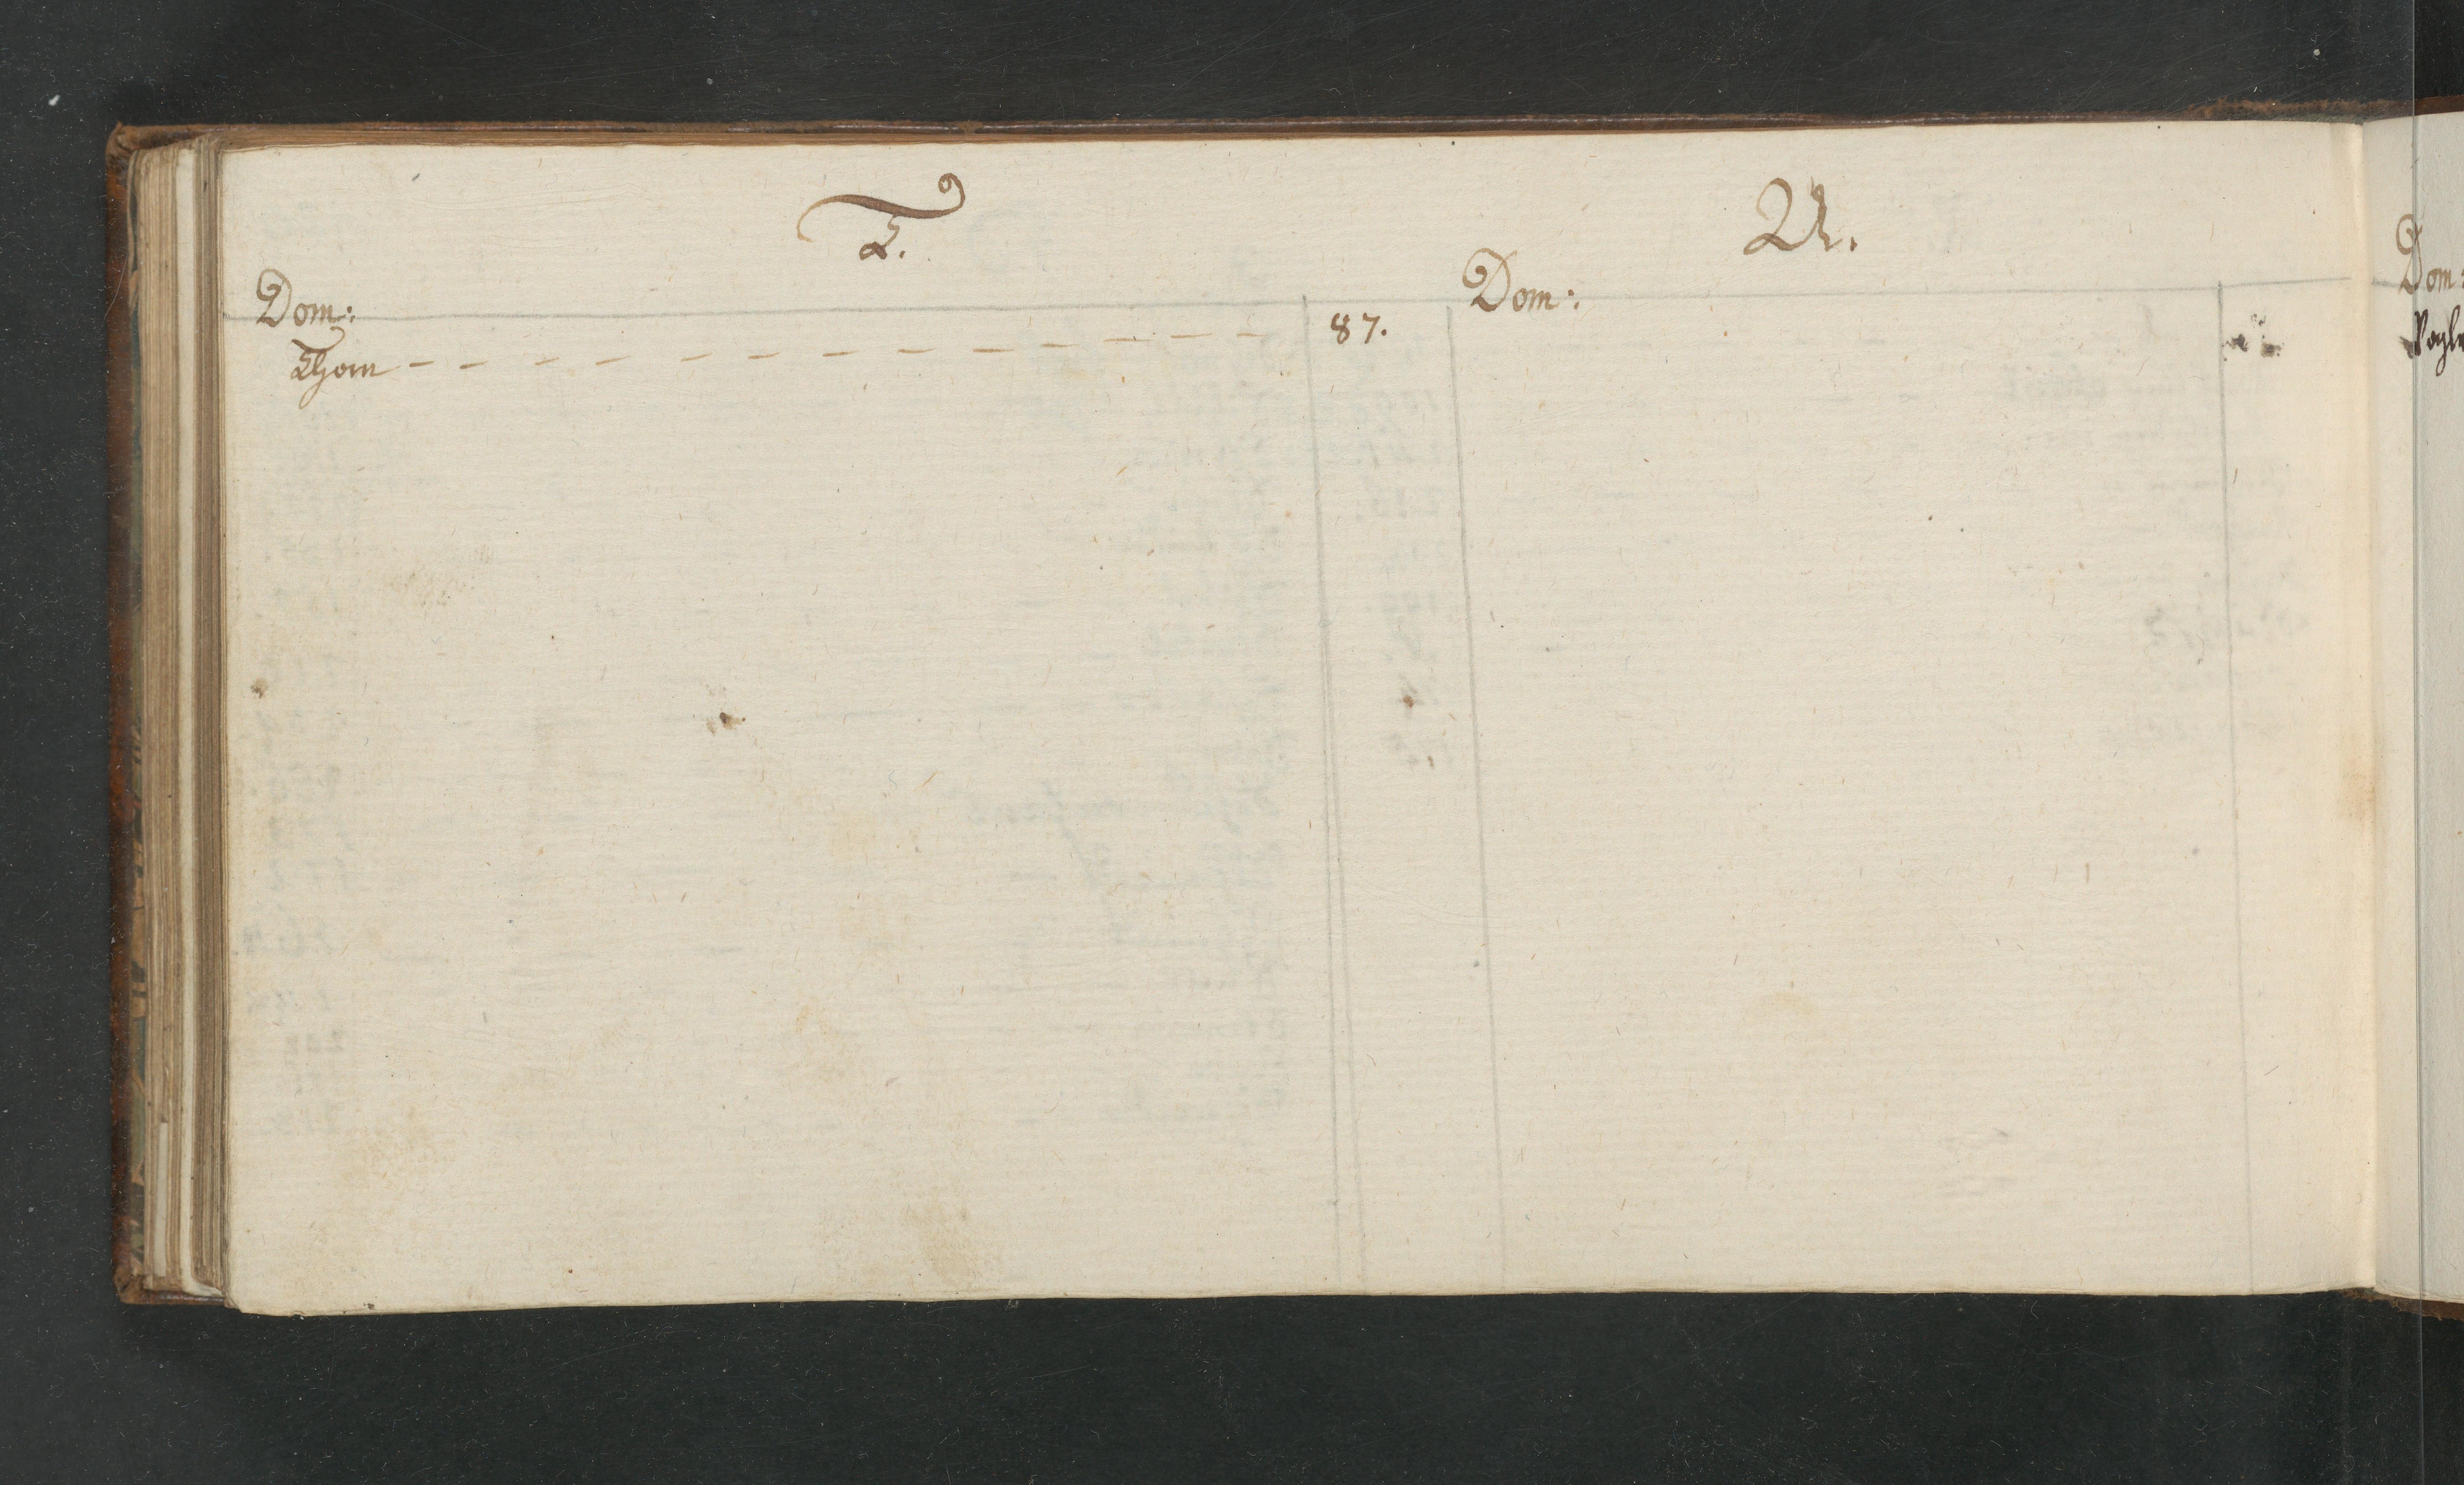 T.
Dom:
Thom – – – – – – – – – – – – – 87.
U.
Dom:
Dom: